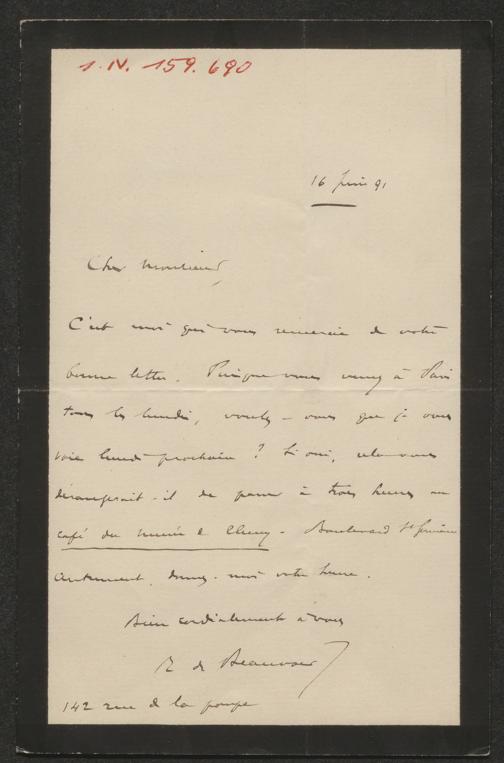 1. N. 159.690
16 juin 91
Cher Monsieur,
C'est moi qui vous remercie de votre
bonne lettre. Puisque vous venez à Paris
tous les lundis, voulez-vous que je vous
voie lundi prochain ? Si oui, cela vous
dérangerait-il de passer à trois heures au
café du musée de Cluny - Boulevard St Germain
Autrement, donnez-moi votre heure.
Bien cordialement à vous
R de Beauvoir
142 rue de la pompe